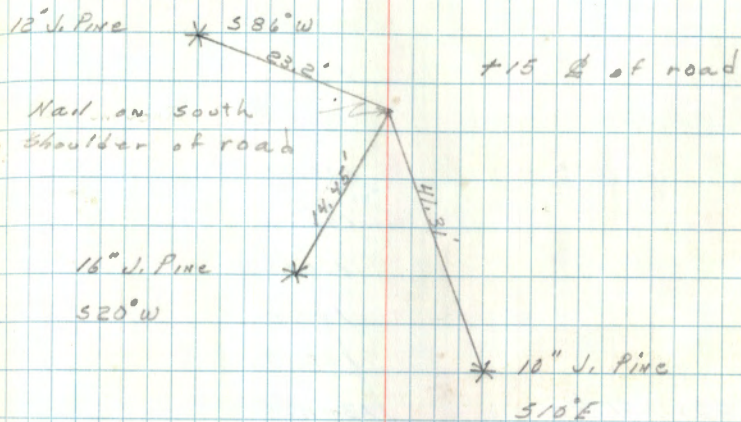 12" J. Pine S86°W
23.2'
+15 ℄ of road
Nail on south
Shoulder of road
14.45'
41.31'
16" J. Pine
S20°W
10" J. Pine
S10°E